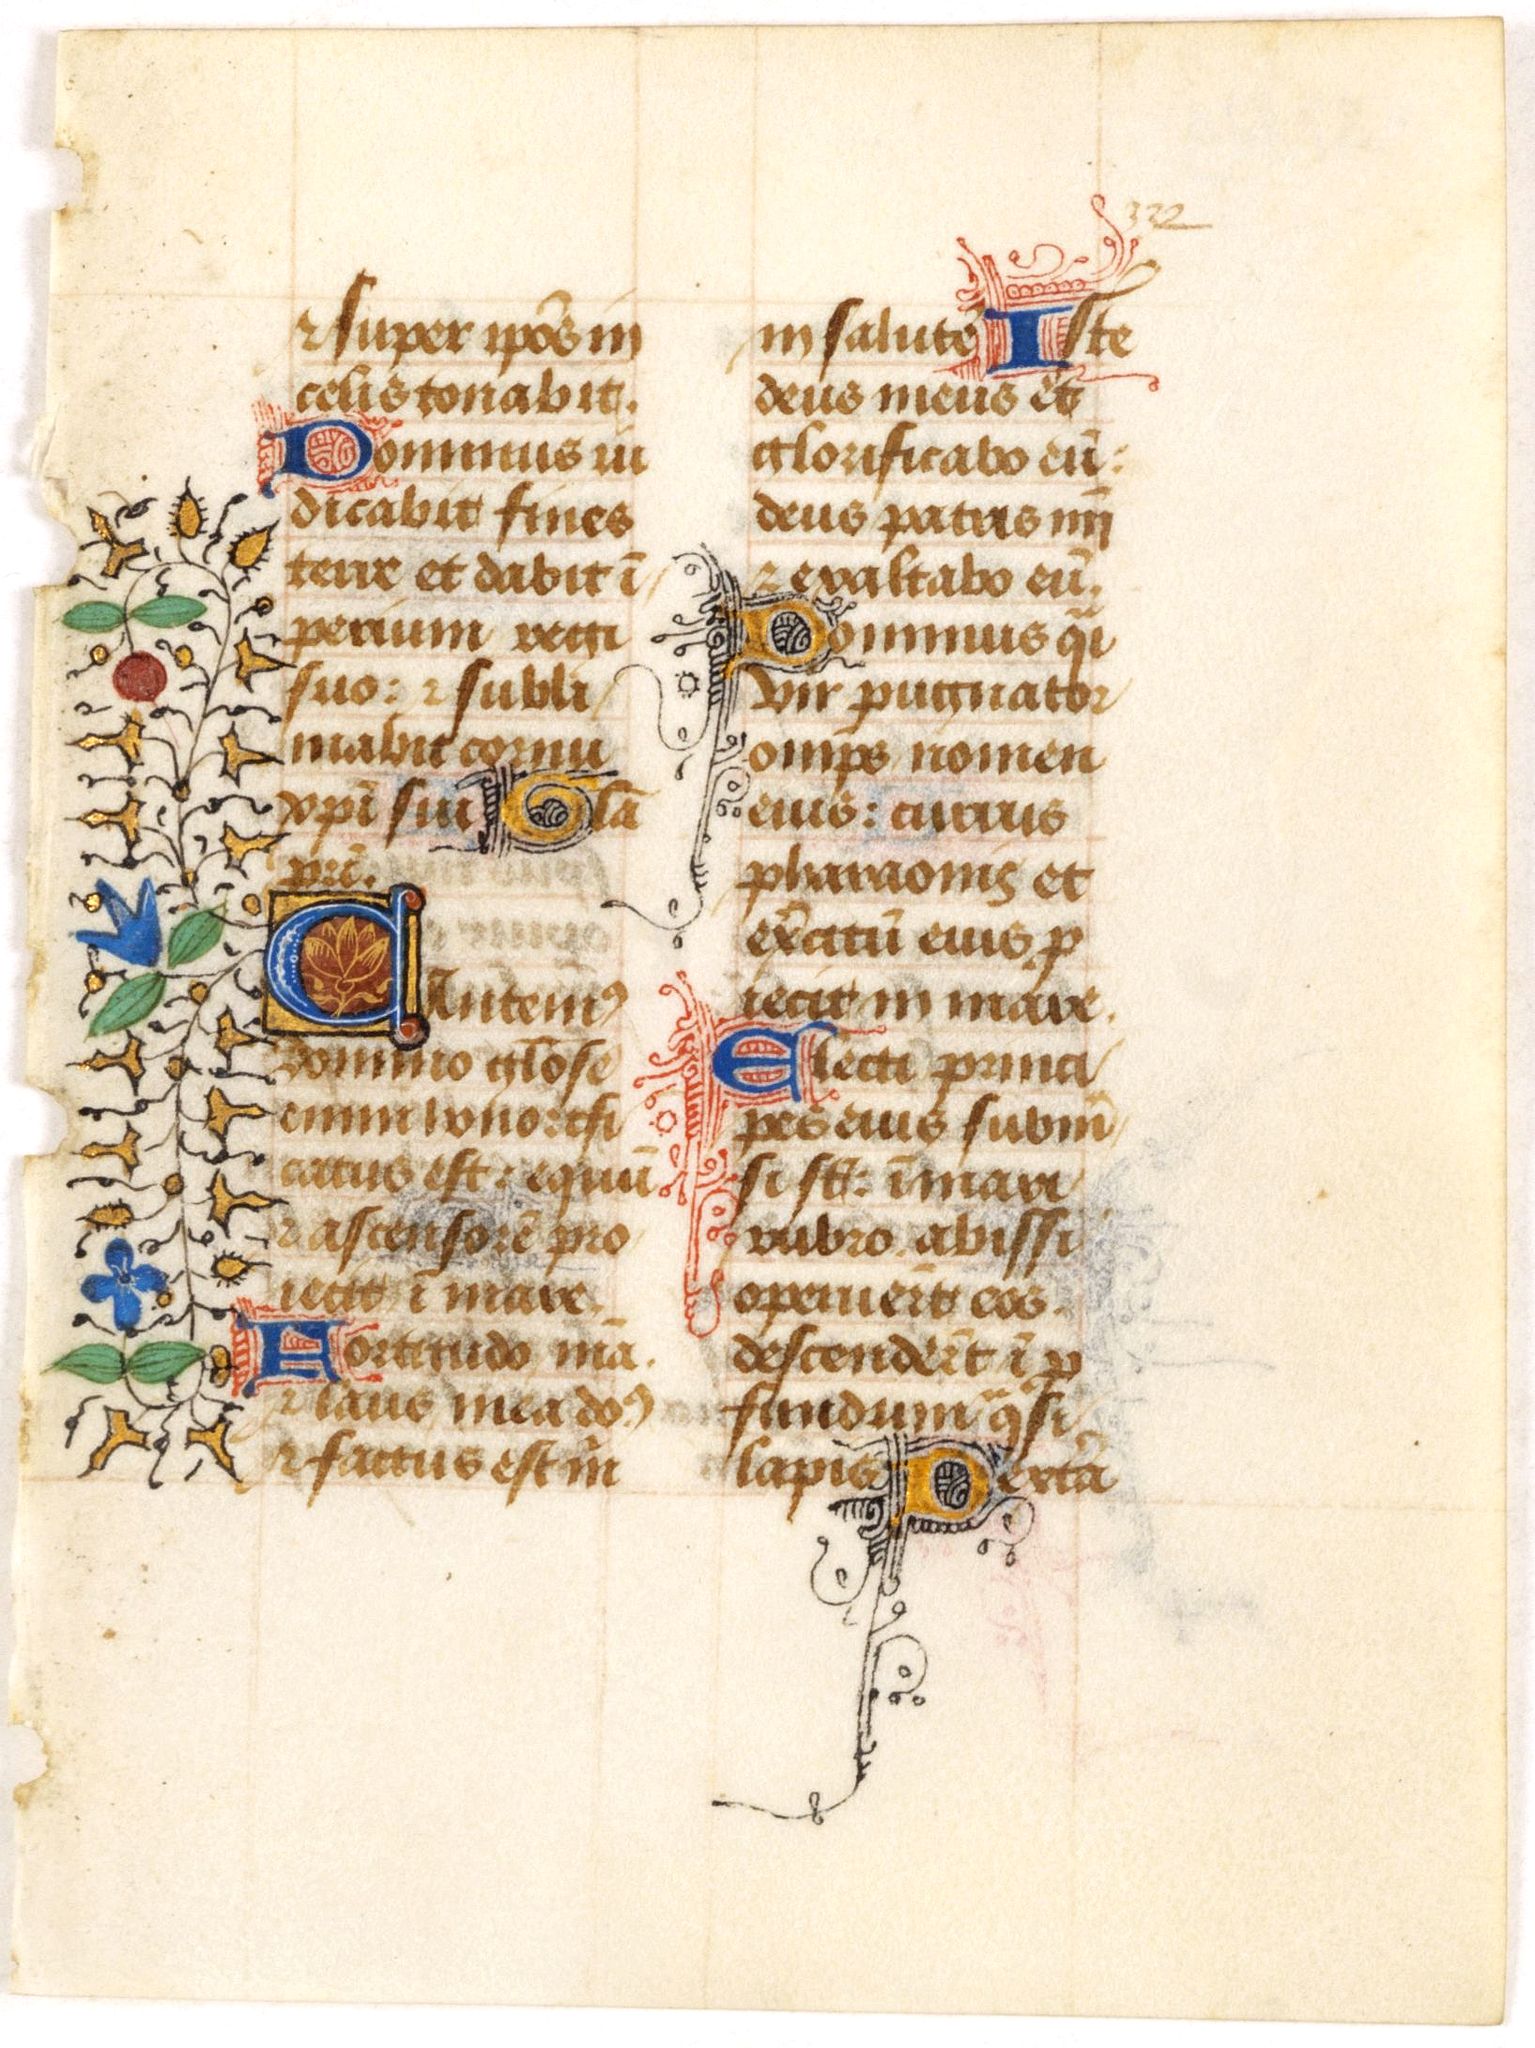 ⁊ super ip̄os in
celis tonabit.
Dominus iu
dicabit fines
terre et dabit ī
perium regi
suo: ⁊ subli
mabit cornu
xp̄i sui Glā
pr̄i.
CAntem⁹
domino glōse
enim honorifi
catus est: equū
⁊ ascensorē pro
iecit ī mare.
Fortitudo m̄a.
⁊ laus mea do⁹
⁊ factus est m̄
in salutē Iste
deus meus et
glorificabo eū:
deus patris m̄i
⁊ exaltabo eū.
Dominus q̄i
vir pugnator
om̄ps nomen
eius: currus
pharaonis et
ex̄citū eius p
iecit in mare.
Electi princi
pes eius subm̄
si sī̄t: ī mari
rubro abissi
operuer̄t eos.
descender̄t ī p
fundum q̄si
lapis Dextā
322